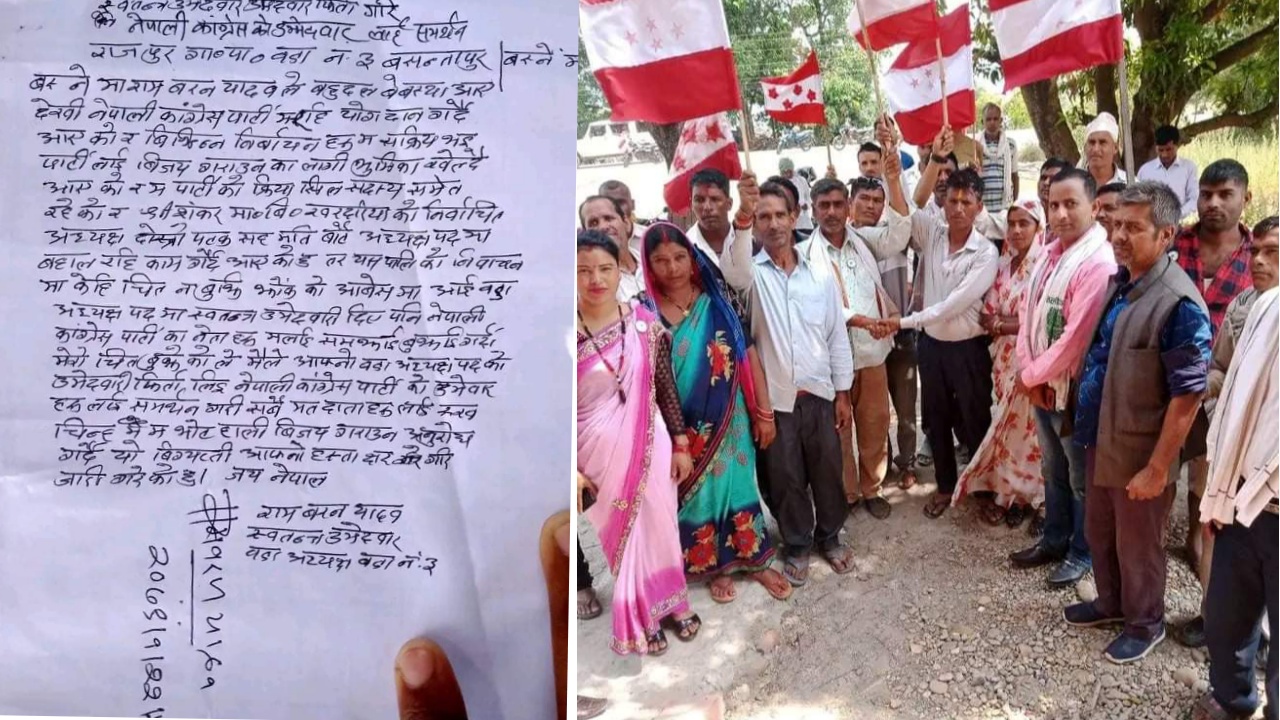 स्वतन्त्र उमेदवार उमेदवारी फिर्ता गरि
नेपाली कांग्रेसको उमेदवार लाई समर्थन
राजपुर गा०पा० वडा न: ३ बसन्तापुर बस्ने
बस्ने मा राम बरन यादवले बहुदल बेबस्था आए
देखी नेपाली कांग्रेस पार्टी योगदान गर्दै
आएको र बिभिन्न निर्वाचन हरुमा सक्रिय भइ
पार्टी लाई बिजय गराउनका लागी भुमिका खेल्दै
आएको र म पार्टी को क्रियाशिल सदस्य समेत
रहेको र श्री शंकर मा०बि० खरदरीया को निर्वाचित
अध्यक्ष दोस्रो पटक सहमति बाट अध्यक्ष पद मा
बहाल रहि काम गर्दै आएको छु तर यस पालि को निर्वाचन
मा केहि चित्त नबुझि झोक को आवेस मा आई वडा
अध्यक्ष पद मा स्वतन्त्र उमेदवारी दिए पनि नेपाली
कांग्रेस पार्टी का नेता हरु मलाई सम्झाई बुझाई गर्दा
मेरो चित्त बुझेको ले मैले आफ्नो वडा अध्यक्ष पद को
उमेदवारी फिर्ता लिई नेपाली कांग्रेस पार्टी को उमेवार
हरु लाई समर्थन गरी सबै मतदाता हरु लाई रुख
चिन्ह मा भोट हाली बिजय गराउन अनुरोध
गर्दै यो बिग्यप्ती आफ्नो हस्ताक्षर गरि
जारी गरेको छु। जय नेपाल
राम बरन यादव
स्वतन्त्र उमेदवार
वडा अध्यक्ष वडा नं: ३